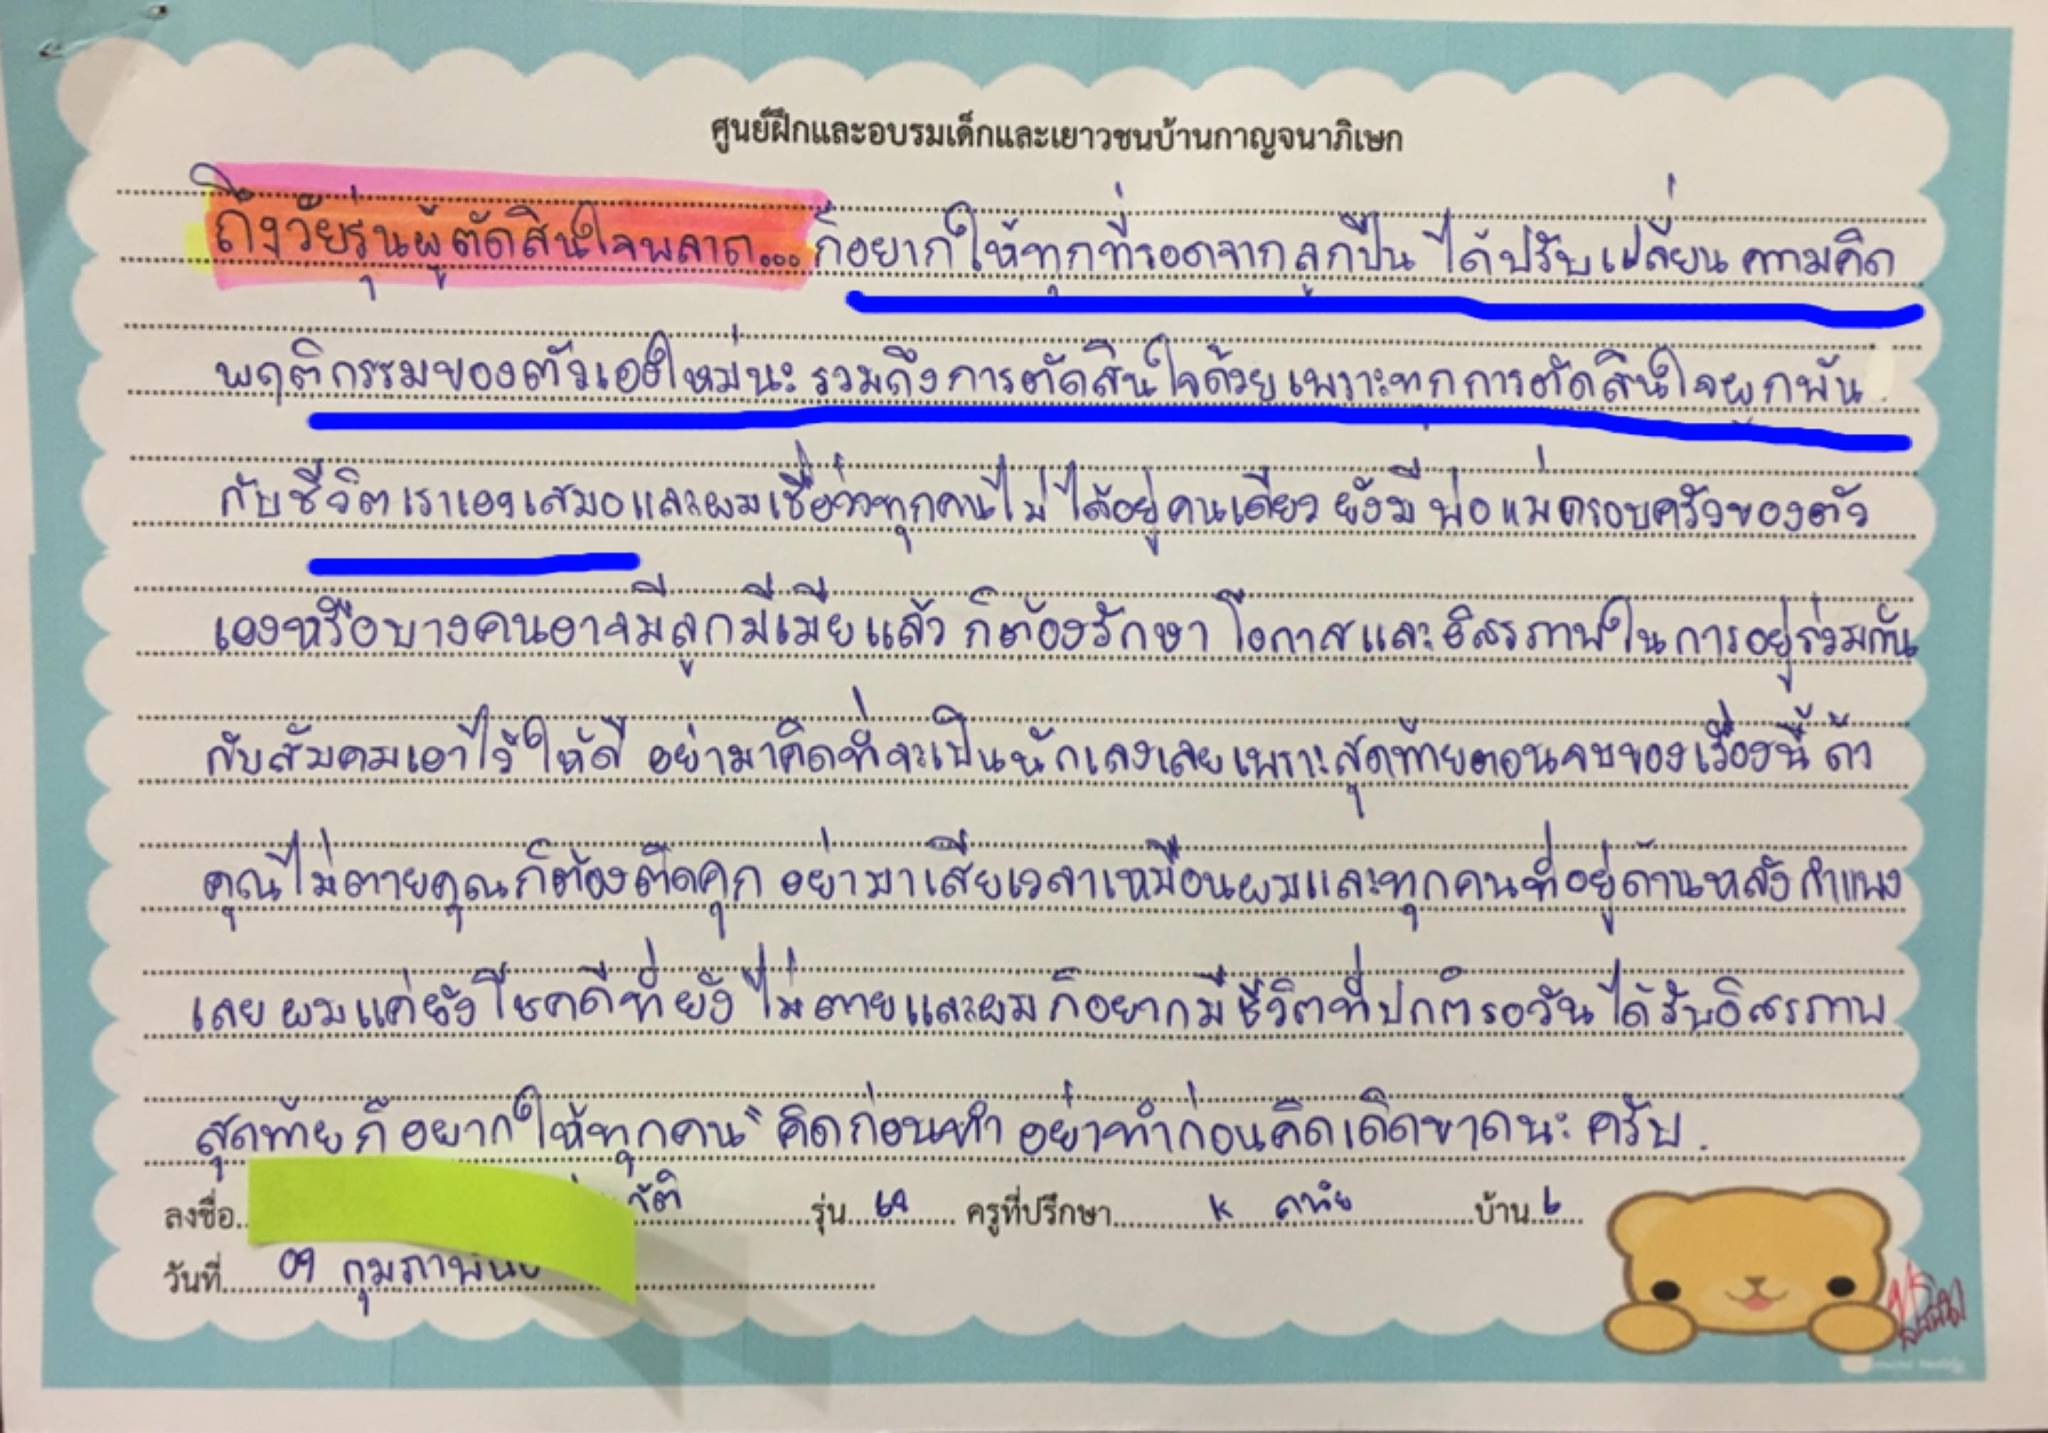 ศูนย์ฝึกและอบรมเด็กและเยาวชนบ้านกาญจนาภิเษก
ถึงวัยรุ่นผู้ตัดสินใจพลาด... ก็อยากให้ทุกที่รอดจากลูกปืน ได้ปรับเปลี่ยน ความคิด
พฤติกรรมของตัวเองใหม่นะ รวมถึงการตัดสินใจด้วยเพราะทุกการตัดสินใจผูกพัน
กับชีวิตเราเองเสมอและผมเชื่อว่าทุกคนไม่ได้อยู่คนเดียว ยังมีพ่อแม่ครอบครัวของตัว
เองหรือบางคนอาจมีลูกมีเมียแล้ว ก็ต้องรักษาโอกาสและอิสรภาพในการอยู่ร่วมกัน
กับสังคมเอาไว้ให้ดี อย่ามาคิดที่จะเป็นนักเลงเลยเพราะสุดท้ายตอนจบของเรื่องนี้ ถ้า
คุณไม่ตายคุณก็ต้องติดคุก อย่ามาเสียเวลาเหมือนผมและทุกคนที่อยู่ด้านหลังกำแพง
เลย ผมแค่ยังโชคดีที่ยังไม่ตายและผมก็อยากมีชีวิตที่ปกติรอวันได้รับอิสรภาพ
สุดท้ายก็อยากให้ทุกคน "คิดก่อนทำ อย่าทำก่อนคิดเด็ดขาดนะครับ.
ลงชื่อ.. รุ่น.... ครูที่ปรึกษา.... บ้าน..6..
วันที่.... 09 กุมภาพันธ์